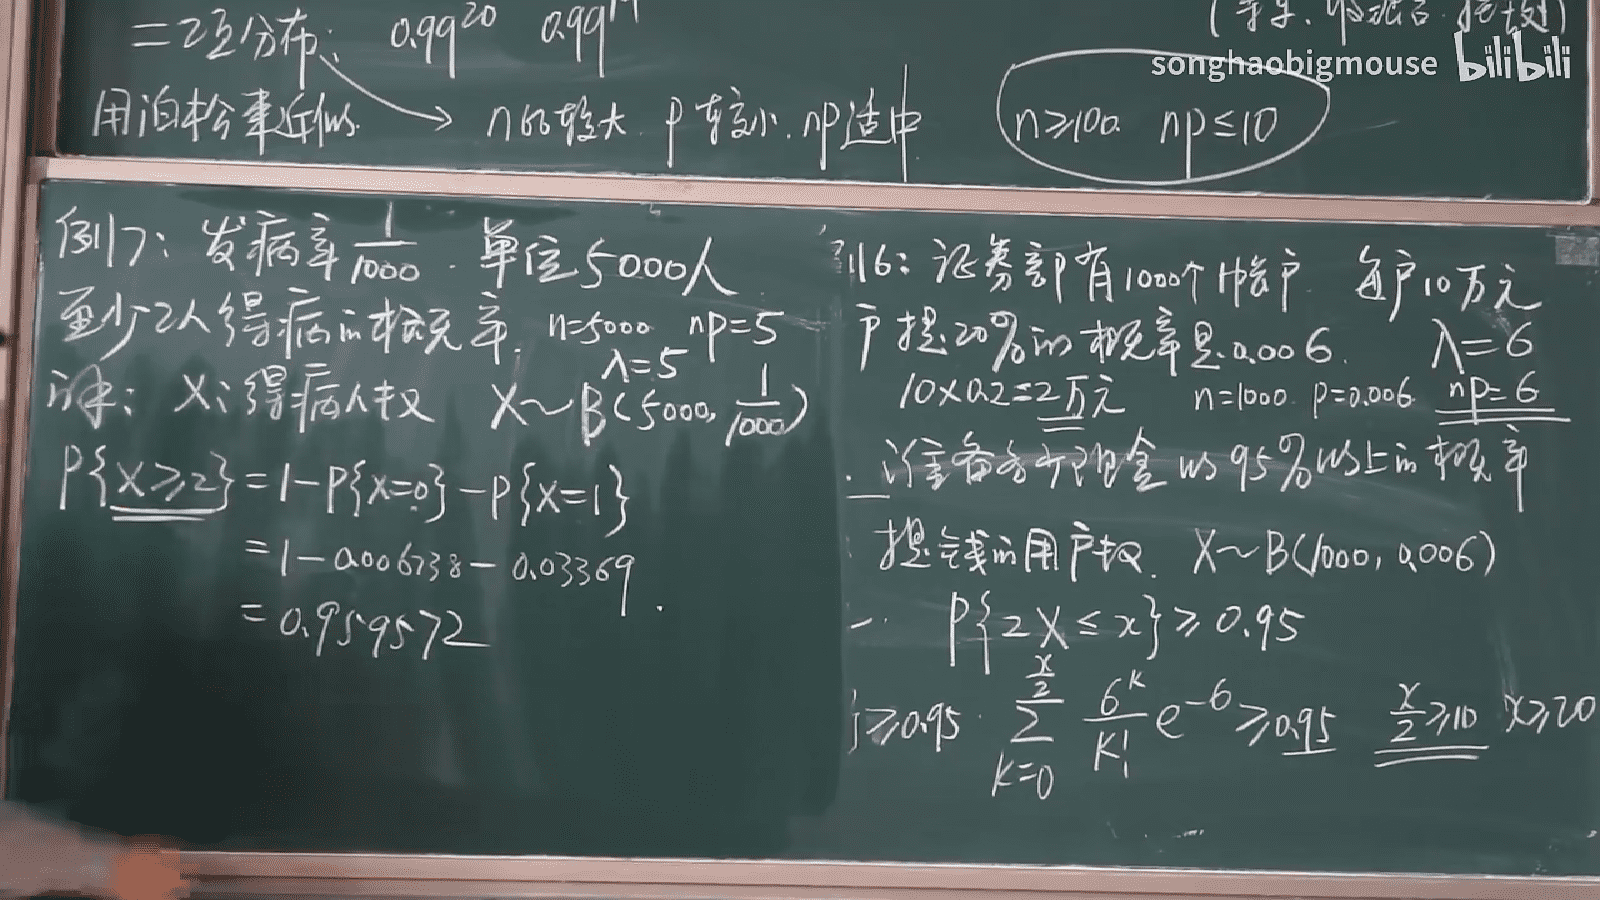 二项分布: 0.99²⁰ 0.99¹⁹
songhaobigmouse bilibili
用泊松来近似. → n比较大 p较小. np适中 n≥100. np≤10
例17: 发病率 1/1000 . 单位5000人
至少2人得病的概率. n=5000 np=5
λ=5
解: X: 得病人数 X~B(5000, 1/1000)
P{X≥2} = 1-P{X=0}-P{X=1}
= 1-0.006738-0.03369
= 0.959572 .
16: 证券部有1000个帐户 每户10万元
户提20%的概率是0.006. λ=6
10×0.2=2万元 n=1000 p=0.006 np=6
准备多少现金 以95%以上的概率
提钱的用户数. X~B(1000, 0.006)
P{2X≤x}≥0.95
}≥0.95 ∑_{K=0}^{x/2} 6^K/K! e⁻⁶≥0.95 x/2≥10 x≥20